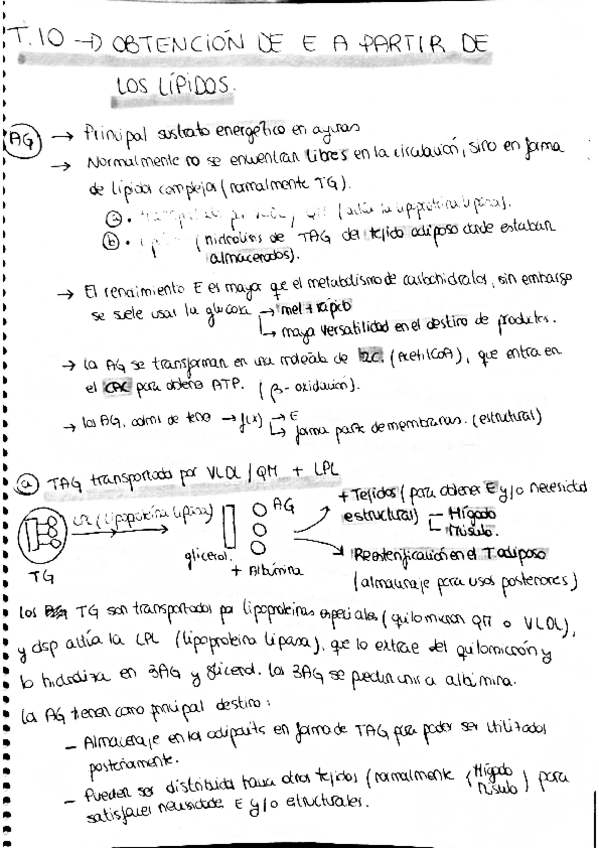 T.10 → OBTENCIÓN DE E A PARTIR DE
LOS LÍPIDOS.
AG → Principal sustrato energético en ayunas
→ Normalmente no se encuentran libres en la circulación, sino en forma
de lípidos complejos (normalmente TG).
a • (lipoproteína lipasa).
b • (hidrólisis de TAG del tejido adiposo donde estaban
almacenados).
→ El rendimiento E es mayor que el metabolismo de carbohidratos, sin embargo
se suele usar la glucosa → met + rápido
↳ mayor versatilidad en el destino de productos.
→ La AG se transforman en una molécula de 2C. (Acetil CoA), que entra en
el CAC para obtener ATP. (β-oxidación).
→ los AG, de → f(x) → E
↳ forma parte de membranas. (estructural)
a TAG transportado por VLDL / QM + LPL
TG
(lipoproteína lipasa)
glicerol.
AG
+ Albúmina
+ Tejidos (para obtener E y/o necesidad
estructuras) Hígado
Músculo.
Reesterificación en el T adiposo
(almacenaje para usos posteriores)
los TG son transportados por lipoproteinas especiales (quilomicron QM o VLDL),
y dsp actúa la LPL (lipoproteína lipasa), que lo extrae del quilomicrón y
lo hidroliza en 3AG y glicerol. los 3AG se pueden unir a albúmina.
la AG tienen como principal destino:
– Almacenaje en los adipocitos en forma de TAG para poder ser utilizados
posteriormente.
– Pueden ser distribuidos hacia otros tejidos (normalmente (Hígado
Músculo) para
satisfacer necesidades E y/o estructurales.